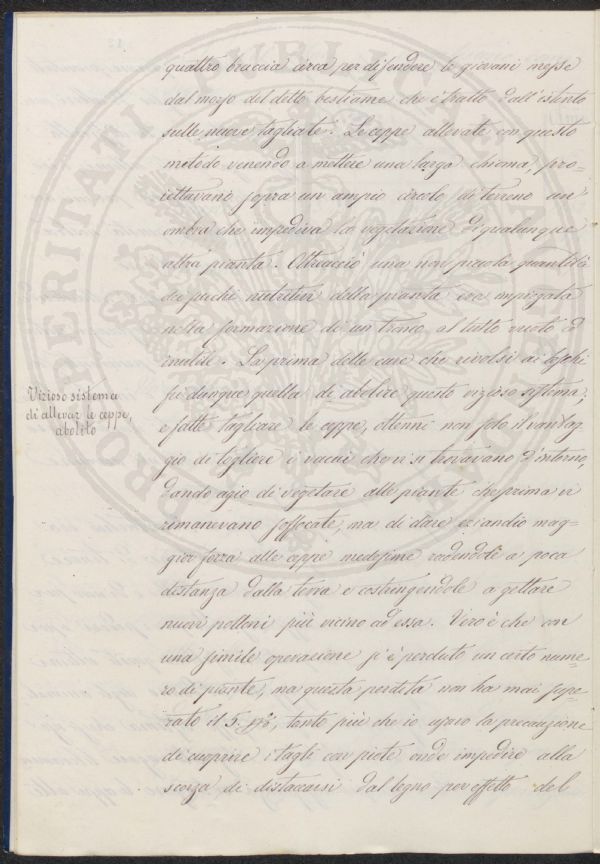 quattro braccia circa per difendere le giovani messe
dal morso del detto bestiame che è tratto dall'istinto
sulle nuove tagliate. Le ceppe allevate con questo
metodo venendo a mettere una larga chioma, pro-
iettavano sopra un ampio circolo di terreno un'
ombra che impediva la vegetazione di qualunque
altra pianta. Oltracciò una non piccola quantità
dei succhi nutritivi della pianta era impiegata
nella formazione di un tronco, al tutto vuoto ed
inutile. La prima delle cure che rivolsi ai boschi
fu dunque quella di abolire questo vizioso sistema,
e fatte tagliare le ceppe, ottenni non solo il vantag-
gio di togliere i vacui che vi si trovavano d'intorno,
dando agio di vegetare alle piante che prima vi
rimanevano soffocate, ma di dare eziandio mag-
gior forza alle ceppe medesime radendole a poca
distanza dalla terra e costringendole a gettare
nuovi polloni più vicino ad essa. Vero è che con
una simile operazione si è perduto un certo nume-
ro di piante, ma questa perdita non ha mai supe-
rato il 5. p%, tanto più che io usavo la precauzione
di cuoprire i tagli con piote onde impedire alla
scorza di distaccarsi dal legno per effetto del
Vizioso sistema
di allevar le ceppe,
abolito
PROSPERITATI PUBLICAE